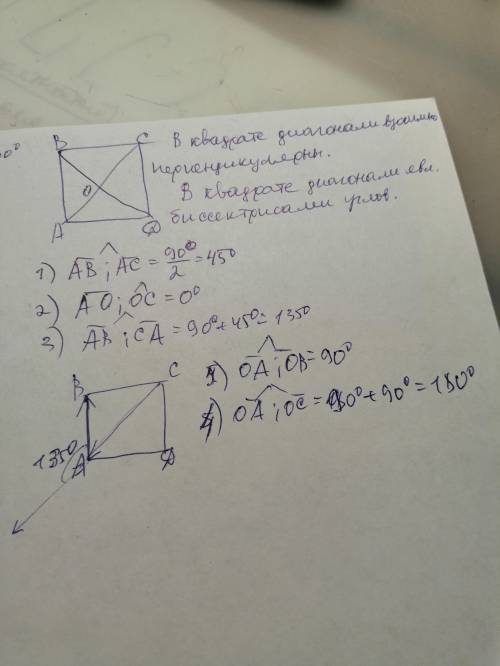 90°
B C
O
A D
В квадрате диагонали взаимно
перпендикулярны.
В квадрате диагонали явл.
биссектрисами углов.
1) AB ; AC = 90°/2 = 45°
2) AO ; OC = 0°
3) AB ; CA = 90° + 45° = 135°
B C
135°
A D
) OA ; OB = 90°
) OA ; OC = 90° + 90° = 180°